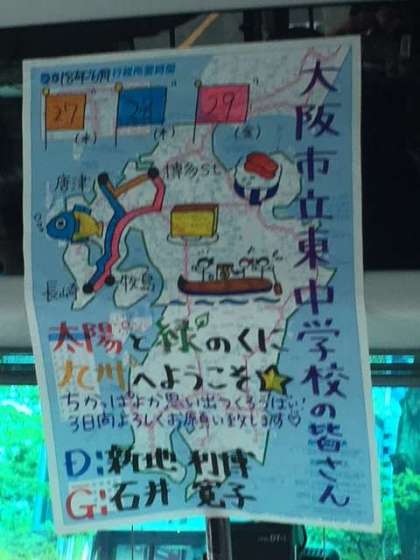 大阪市立東中学校の皆さん
2018年6月 行程所要時間
27 28 29
(水) (木) (金)
唐津 博多St.
長崎 牧島
太陽と緑のくに
九州へようこそ
3日間よろしくお願い致します♡
D:新地 利博
G:石井 寛子